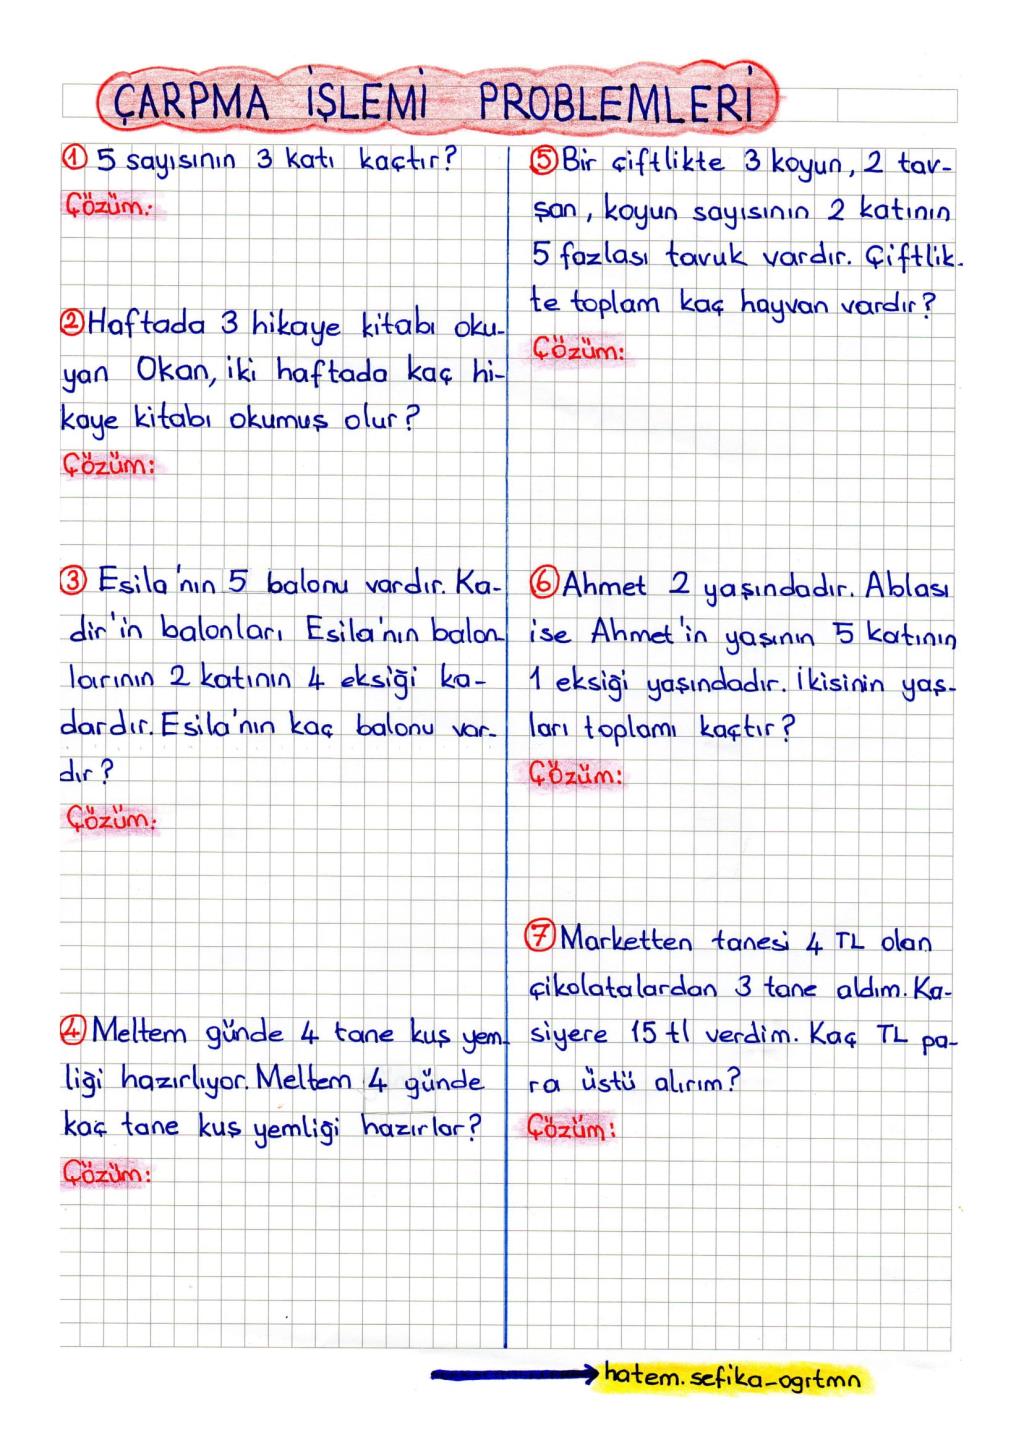 ÇARPMA İŞLEMİ PROBLEMLERİ
① 5 sayısının 3 katı kaçtır?
Çözüm:
② Haftada 3 hikaye kitabı oku-
yan Okan, iki haftada kaç hi-
kaye kitabı okumuş olur?
Çözüm:
③ Esila'nın 5 balonu vardır. Ka-
dir'in balonları Esila'nın balon-
larının 2 katının 4 eksiği ka-
dardır. Esila'nın kaç balonu var-
dır?
Çözüm:
④ Meltem günde 4 tane kuş yem-
liği hazırlıyor. Meltem 4 günde
kaç tane kuş yemliği hazırlar?
Çözüm:
⑤ Bir çiftlikte 3 koyun, 2 tav-
şan, koyun sayısının 2 katının
5 fazlası tavuk vardır. Çiftlik-
te toplam kaç hayvan vardır?
Çözüm:
⑥ Ahmet 2 yaşındadır. Ablası
ise Ahmet'in yaşının 5 katının
1 eksiği yaşındadır. İkisinin yaş-
ları toplamı kaçtır?
Çözüm:
⑦ Marketten tanesi 4 TL olan
çikolatalardan 3 tane aldım. Ka-
siyere 15 tl verdim. Kaç TL pa-
ra üstü alırım?
Çözüm:
hatem.sefika-ogrtmn